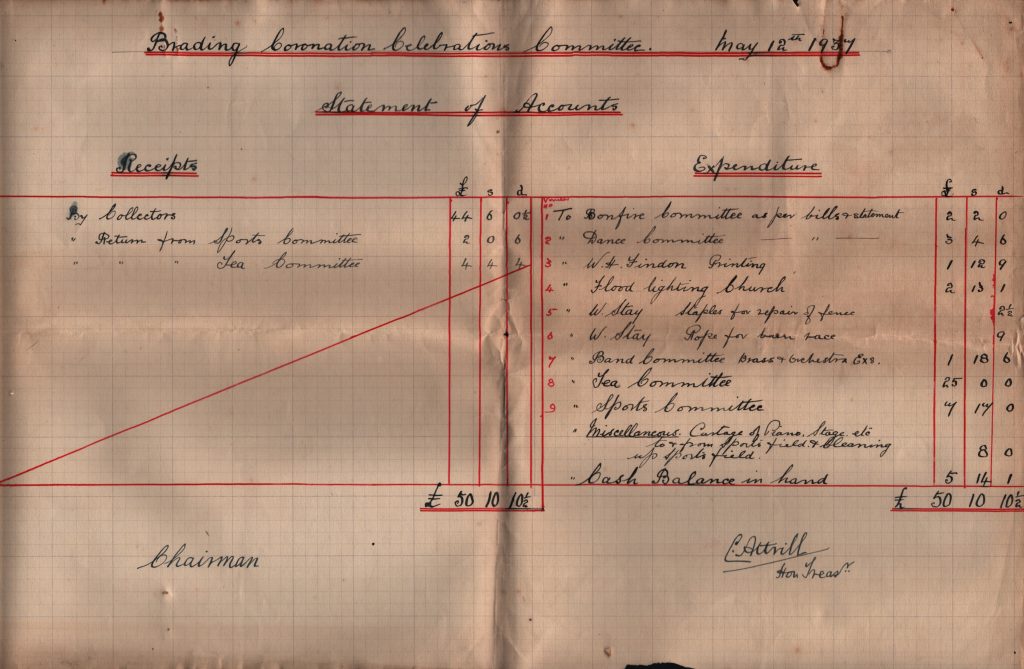 Brading Coronation Celebrations Committee. May 12th 1937
Statement of Accounts
Receipts
£ s d
By Collectors 44 6 0½
" Return from Sports Committee 2 0 6
" " " Tea Committee 4 4 4
£ 50 10 10½
Chairman
Expenditure
£ s d
Voucher No
1 To Bonfire Committee as per bills & statement 2 2 0
2 " Dance Committee — " — 3 4 6
3 " W.H. Findon Printing 1 12 9
4 " Flood lighting Church 2 13 1
5 " W. Stay Staples for repair of fence 2½
6 " W. Stay Rope for race 9
7 " Band Committee Brass & Orchestra Exs. 1 18 6
8 " Tea Committee 25 0 0
9 " Sports Committee 7 17 0
" Miscellaneous. Cartage of Piano, Stage etc
to & from Sports field. & Cleaning
up Sports field. 8 0
" Cash Balance in hand 5 14 1
£ 50 10 10½
C. Attrill
Hon Treasr.